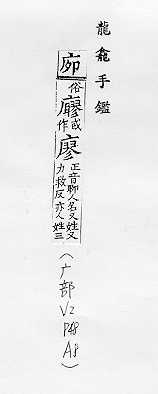 龍龕手鑑
俗
或作
廖
正音聊人名又姓又
力救反亦人姓三
(广部 V2 P48 A8)